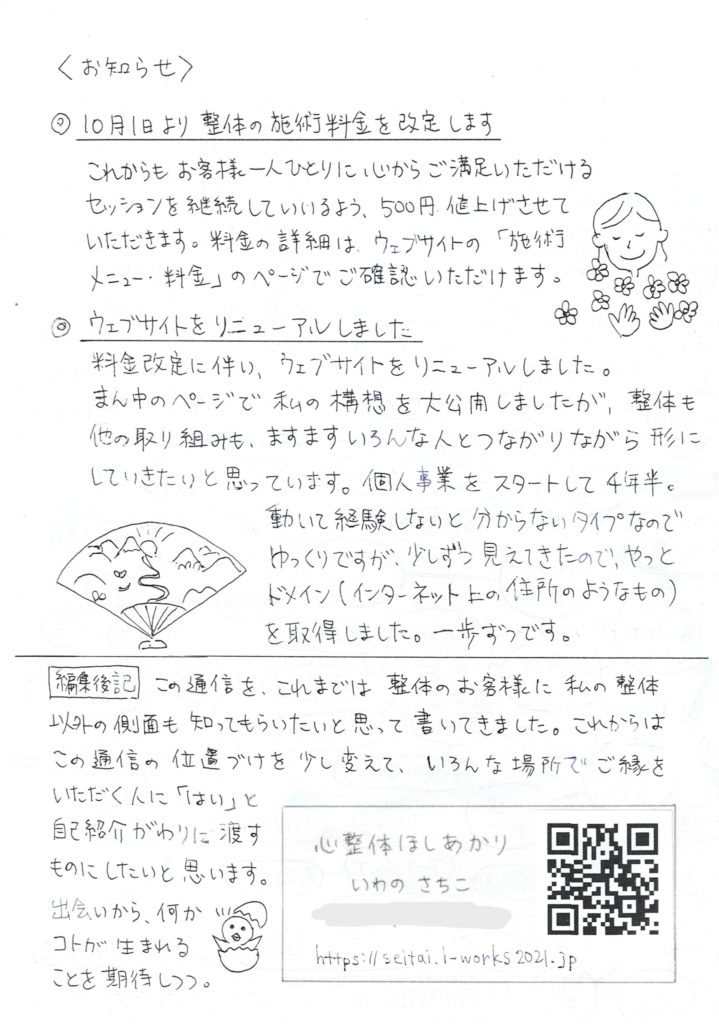 〈お知らせ〉
◎ 10月1日より 整体の施術料金を改定します
これからも お客様一人ひとりに 心から ご満足いただける
セッションを継続していいるよう、500円 値上げさせて
いただきます。料金の詳細は、ウェブサイトの「施術
メニュー・料金」のページで ご確認いただけます。
◎ ウェブサイトをリニューアルしました
料金改定に伴い、ウェブサイトをリニューアルしました。
まん中のページで 私の構想を大公開しましたが、整体も
他の取り組みも、ますますいろんな人とつながりながら 形に
していきたいと思っています。個人事業をスタートして4年半。
動いて経験しないと分からないタイプなので
ゆっくりですが、少しずつ見えてきたので、やっと
ドメイン(インターネット上の住所のようなもの)
を取得しました。一歩ずつです。
編集後記 この通信を、これまでは 整体のお客様に 私の整体
以外の側面も 知ってもらいたいと思って 書いてきました。これからは
この通信の位置づけを少し変えて、いろんな場所でご縁を
いただく人に「はい」と
自己紹介がわりに渡す
ものにしたいと思います。
出会いから、何か
コトが生まれる
ことを期待しつつ。
心整体ほしあかり
いわの さちこ
https://seitai.i-works2021.jp